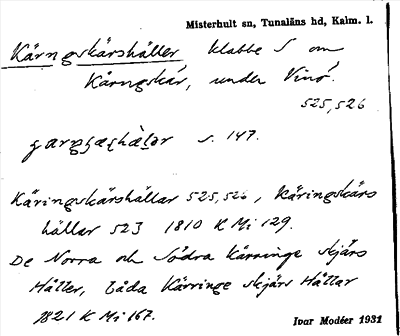 Misterhult sn, Tunaläns hd, Kalm. l.
Kärngskärshäller, klabbe S om
Kärngskär, under Vinö.
525, 526
s. 147.
Käringskärshällar 525, 526, Käringskärs
hällar 523 1810 K Mi 129.
De Norra och Södra Kärringe skjärs
Häller, båda Kärringe skjärs Hällar
1821 K Mi 167.
Ivar Modéer 1931